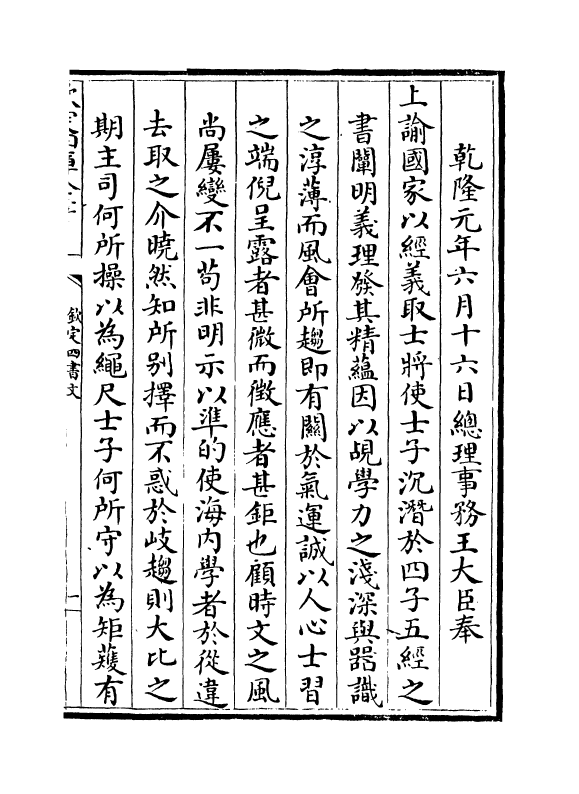 乾隆元年六月十六日總理事務王大臣奉
上諭國家以經義取士將使士子沉潛於四子五經之
書闡明義理發其精蘊因以覘學力之淺深與器識
之淳薄而風會所趨即有關於氣運誠以人心士習
之端倪呈露者甚微而徵應者甚鉅也顧時文之風
尚屢變不一苟非明示以準的使海內學者於從違
去取之介曉然知所别擇而不惑於岐趨則大比之
期主司何所操以為繩尺士子何所守以為矩矱有
欽定四書文
一